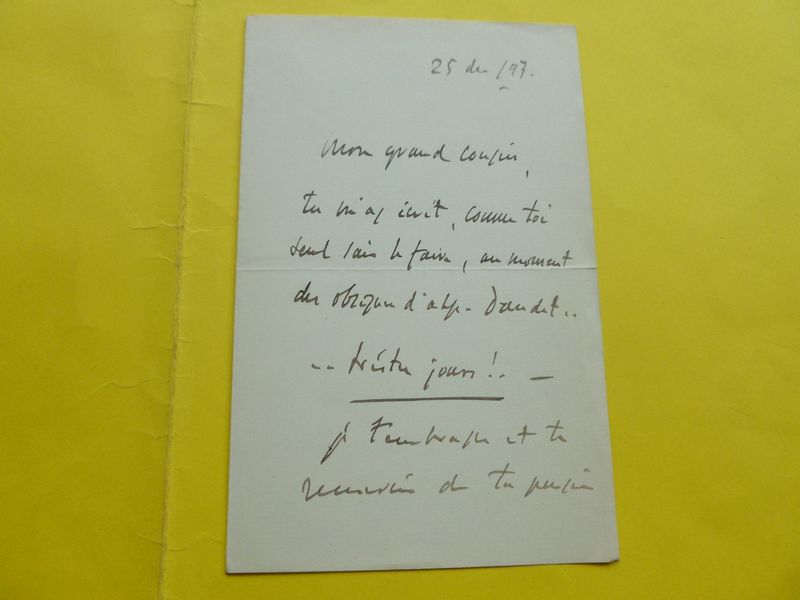 25 dec /97.
Mon grand cousin,
tu m'as écrit, comme toi
seul sais le faire, au moment
des obsèques d'alph. Daudet..
.. tristes jours!. —
je t'embrasse et te
remercie de ta pensée